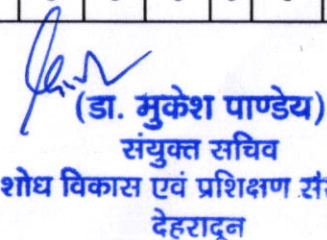 (डा. मुकेश पाण्डेय)
संयुक्त सचिव
शोध विकास एवं प्रशिक्षण
देहरादून